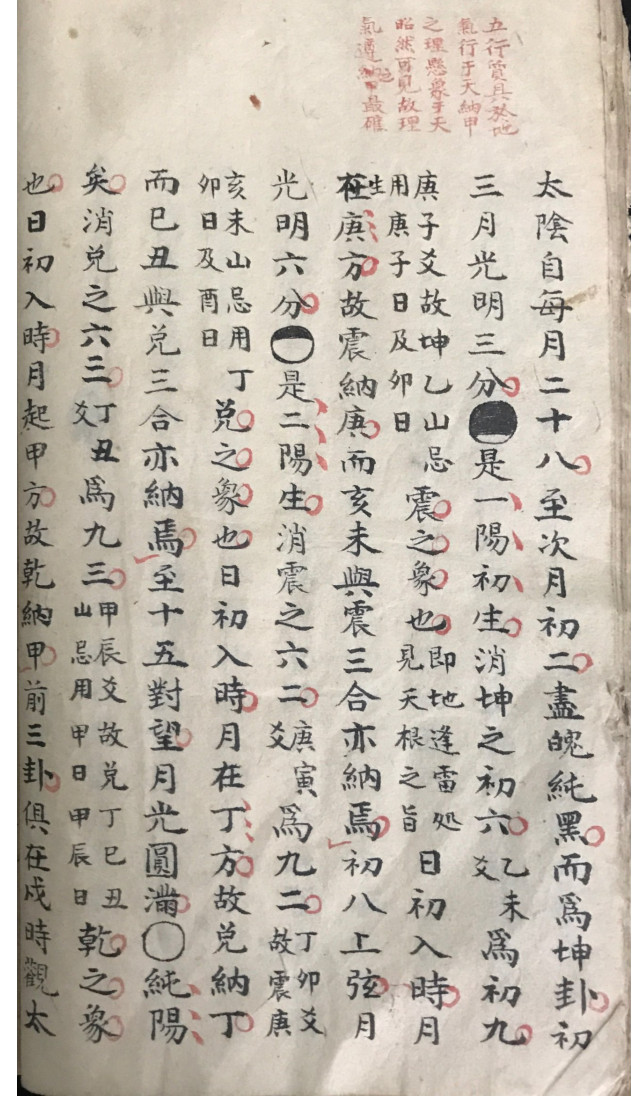 五行質具於地
氣行于天納甲
之理懸象于天
昭然可見故理
氣遵之納甲最確
太陰自每月二十八至次月初二盡魄純黑而爲坤卦初
三月光明三分是一陽初生消坤之初六乙未爻爲初九
庚子爻故坤乙山忌用庚子日及卯日震之象也即地逢雷処見天根之旨日初入時月
生庚方故震納庚而亥未與震三合亦納焉初八上弦月
光明六分是二陽生消震之六二庚寅爻爲九二丁卯爻故震庚
亥未山忌用丁卯日及酉日兌之象也日初入時月在丁方故兌納丁
而巳丑與兌三合亦納焉至十五對望月光圓滿〇純陽
矣消兌之六三丁丑爻爲九三甲辰爻故兌丁巳丑山忌用甲日甲辰日乾之象
也日初入時月起甲方故乾納甲前三卦俱在戍時觀太